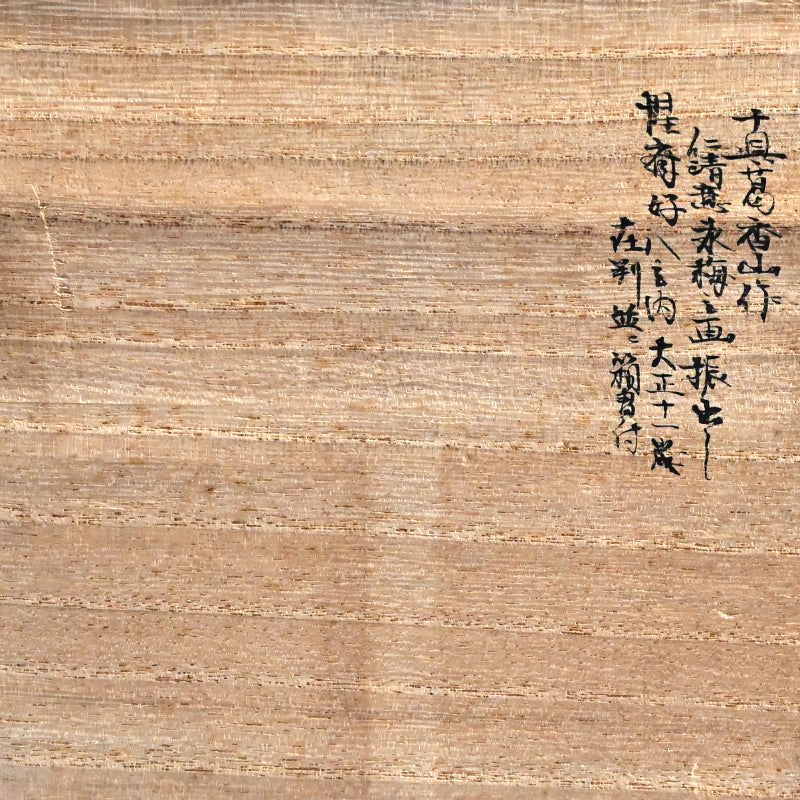 真葛香山作
仁清意 梅之画振出し
惺斎好八之内 大正十一歳
在判並ニ箱書付